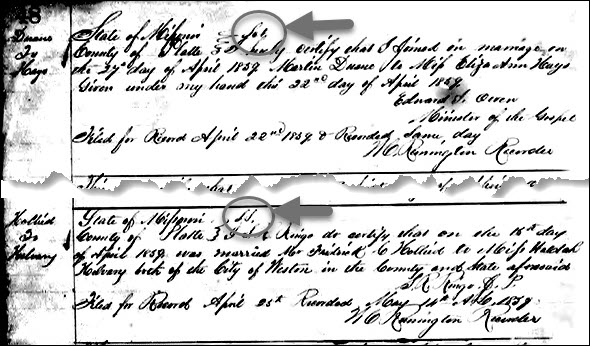 Duane
To
Hays
State of Missouri } Sct.
County of Platte } I hereby certify that I Joined in marriage on
the 27th day of April 1859 Martin Duane to Miss Eliza Ann Hays
Given under my hand this 22nd day of April 1859
Edward S. Owen
Minister of the Gospel
Filed for Record April 22nd 1859 & Recorded Same day
W C Remington Recorder
To
State of Missouri } SS.
County of Platte } I Ringo do certify that on the 18th day
of April 1859 was married Mr Fredrick C to Miss
both of the City of Weston in the County and State aforesaid
Ringo J. P.
Filed for Record April 25th Recorded May 14th A.D. 1859
W C Remington Recorder